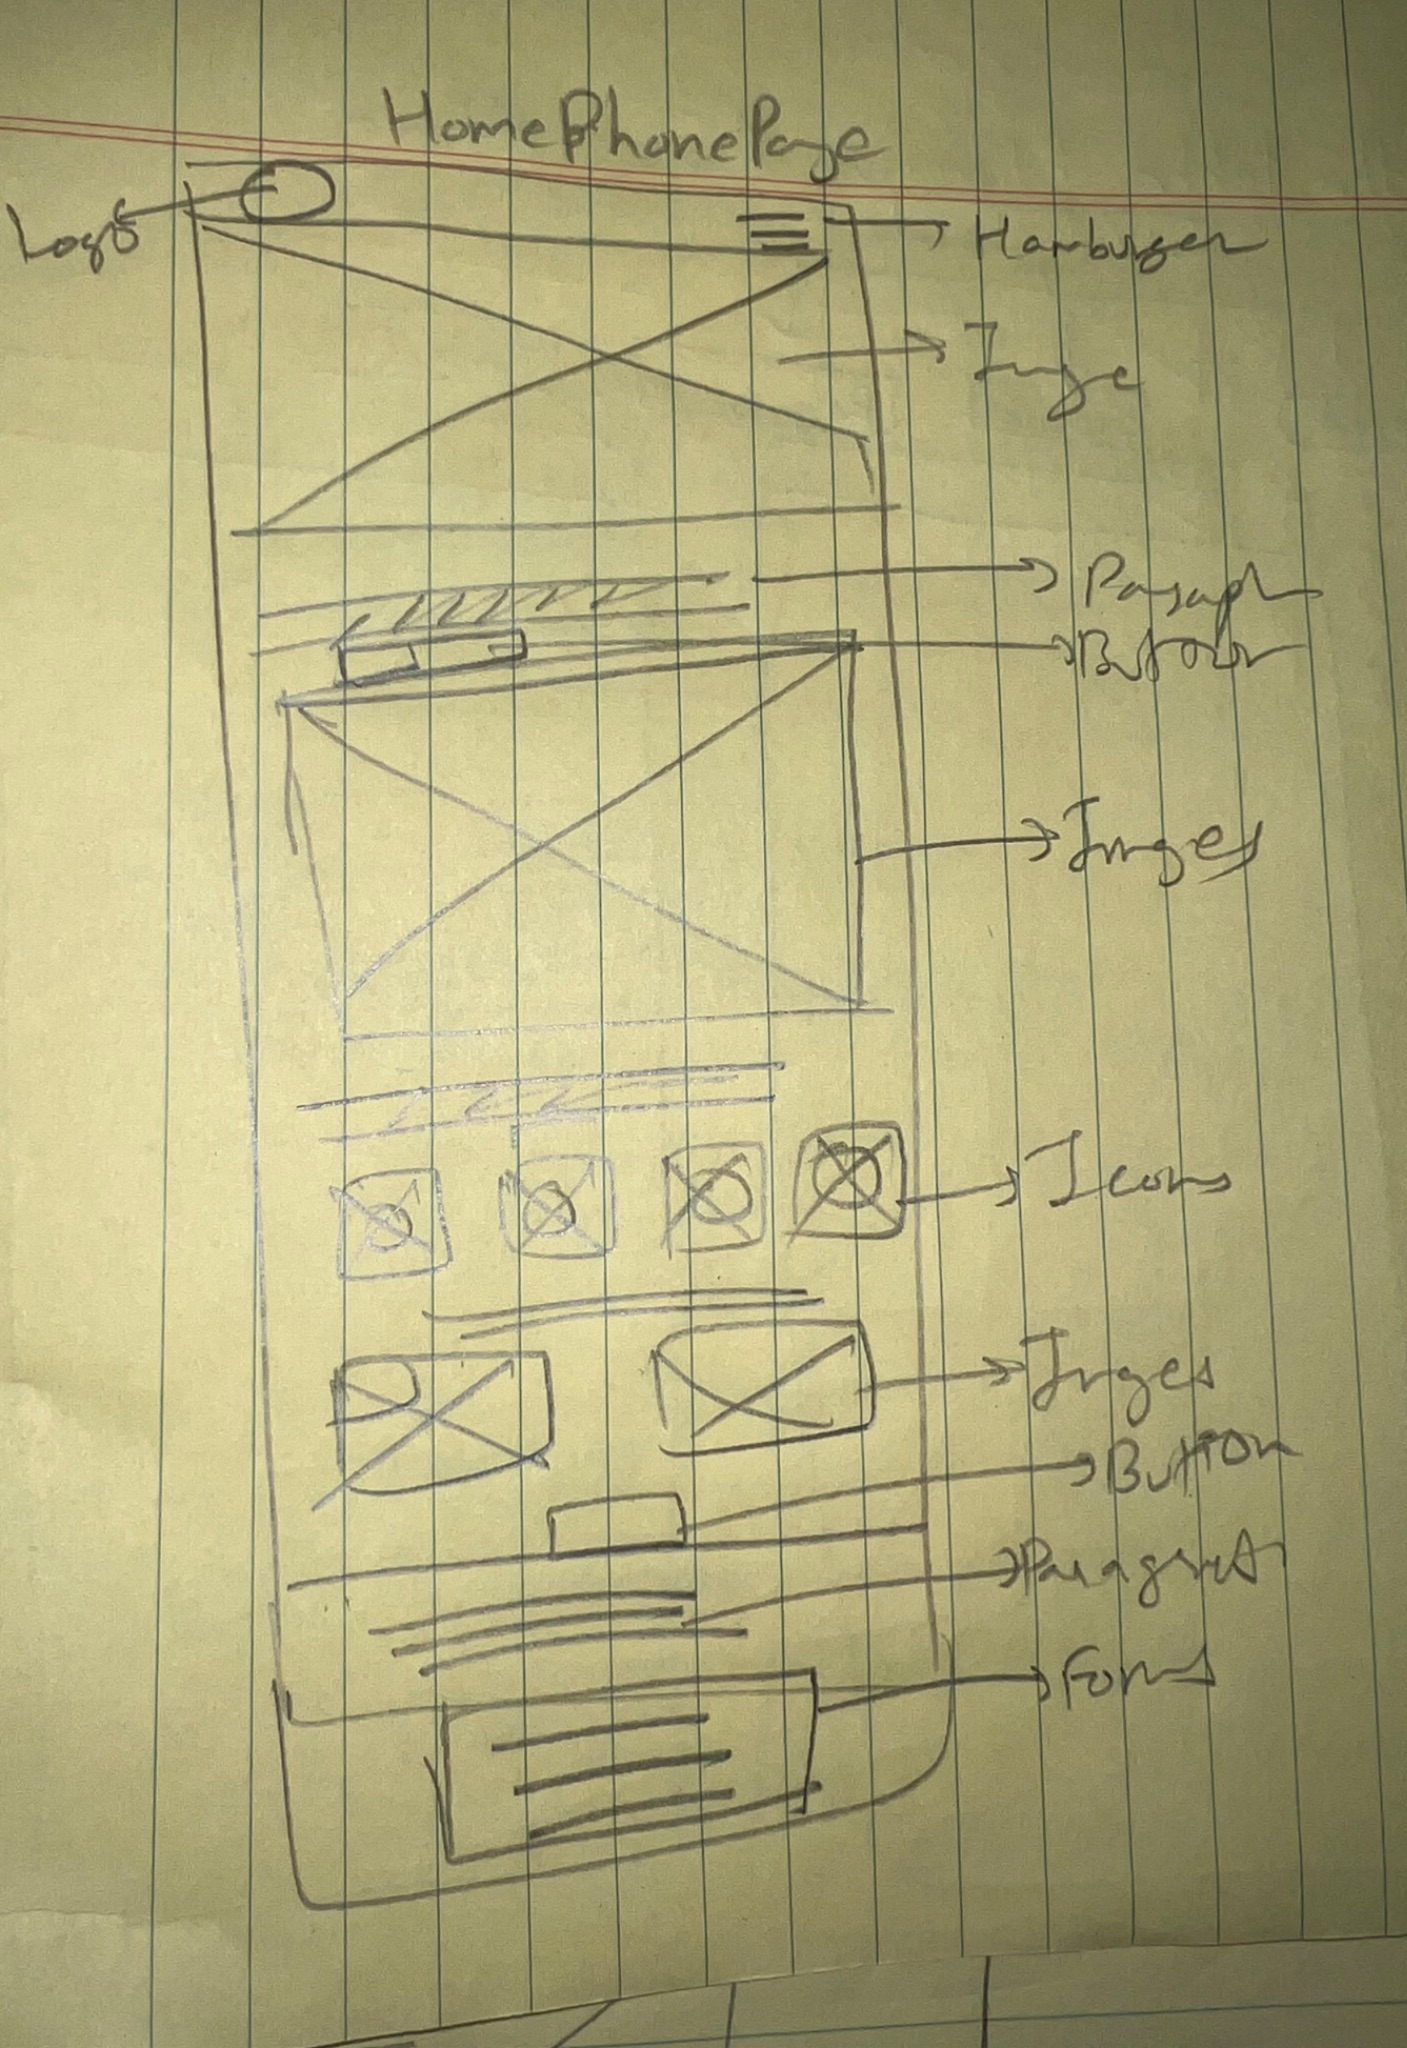 Home Phone Page
Logo
Hamburger
Image
Paragraph
Button
Images
Icons
Images
Button
Paragraph
Forms